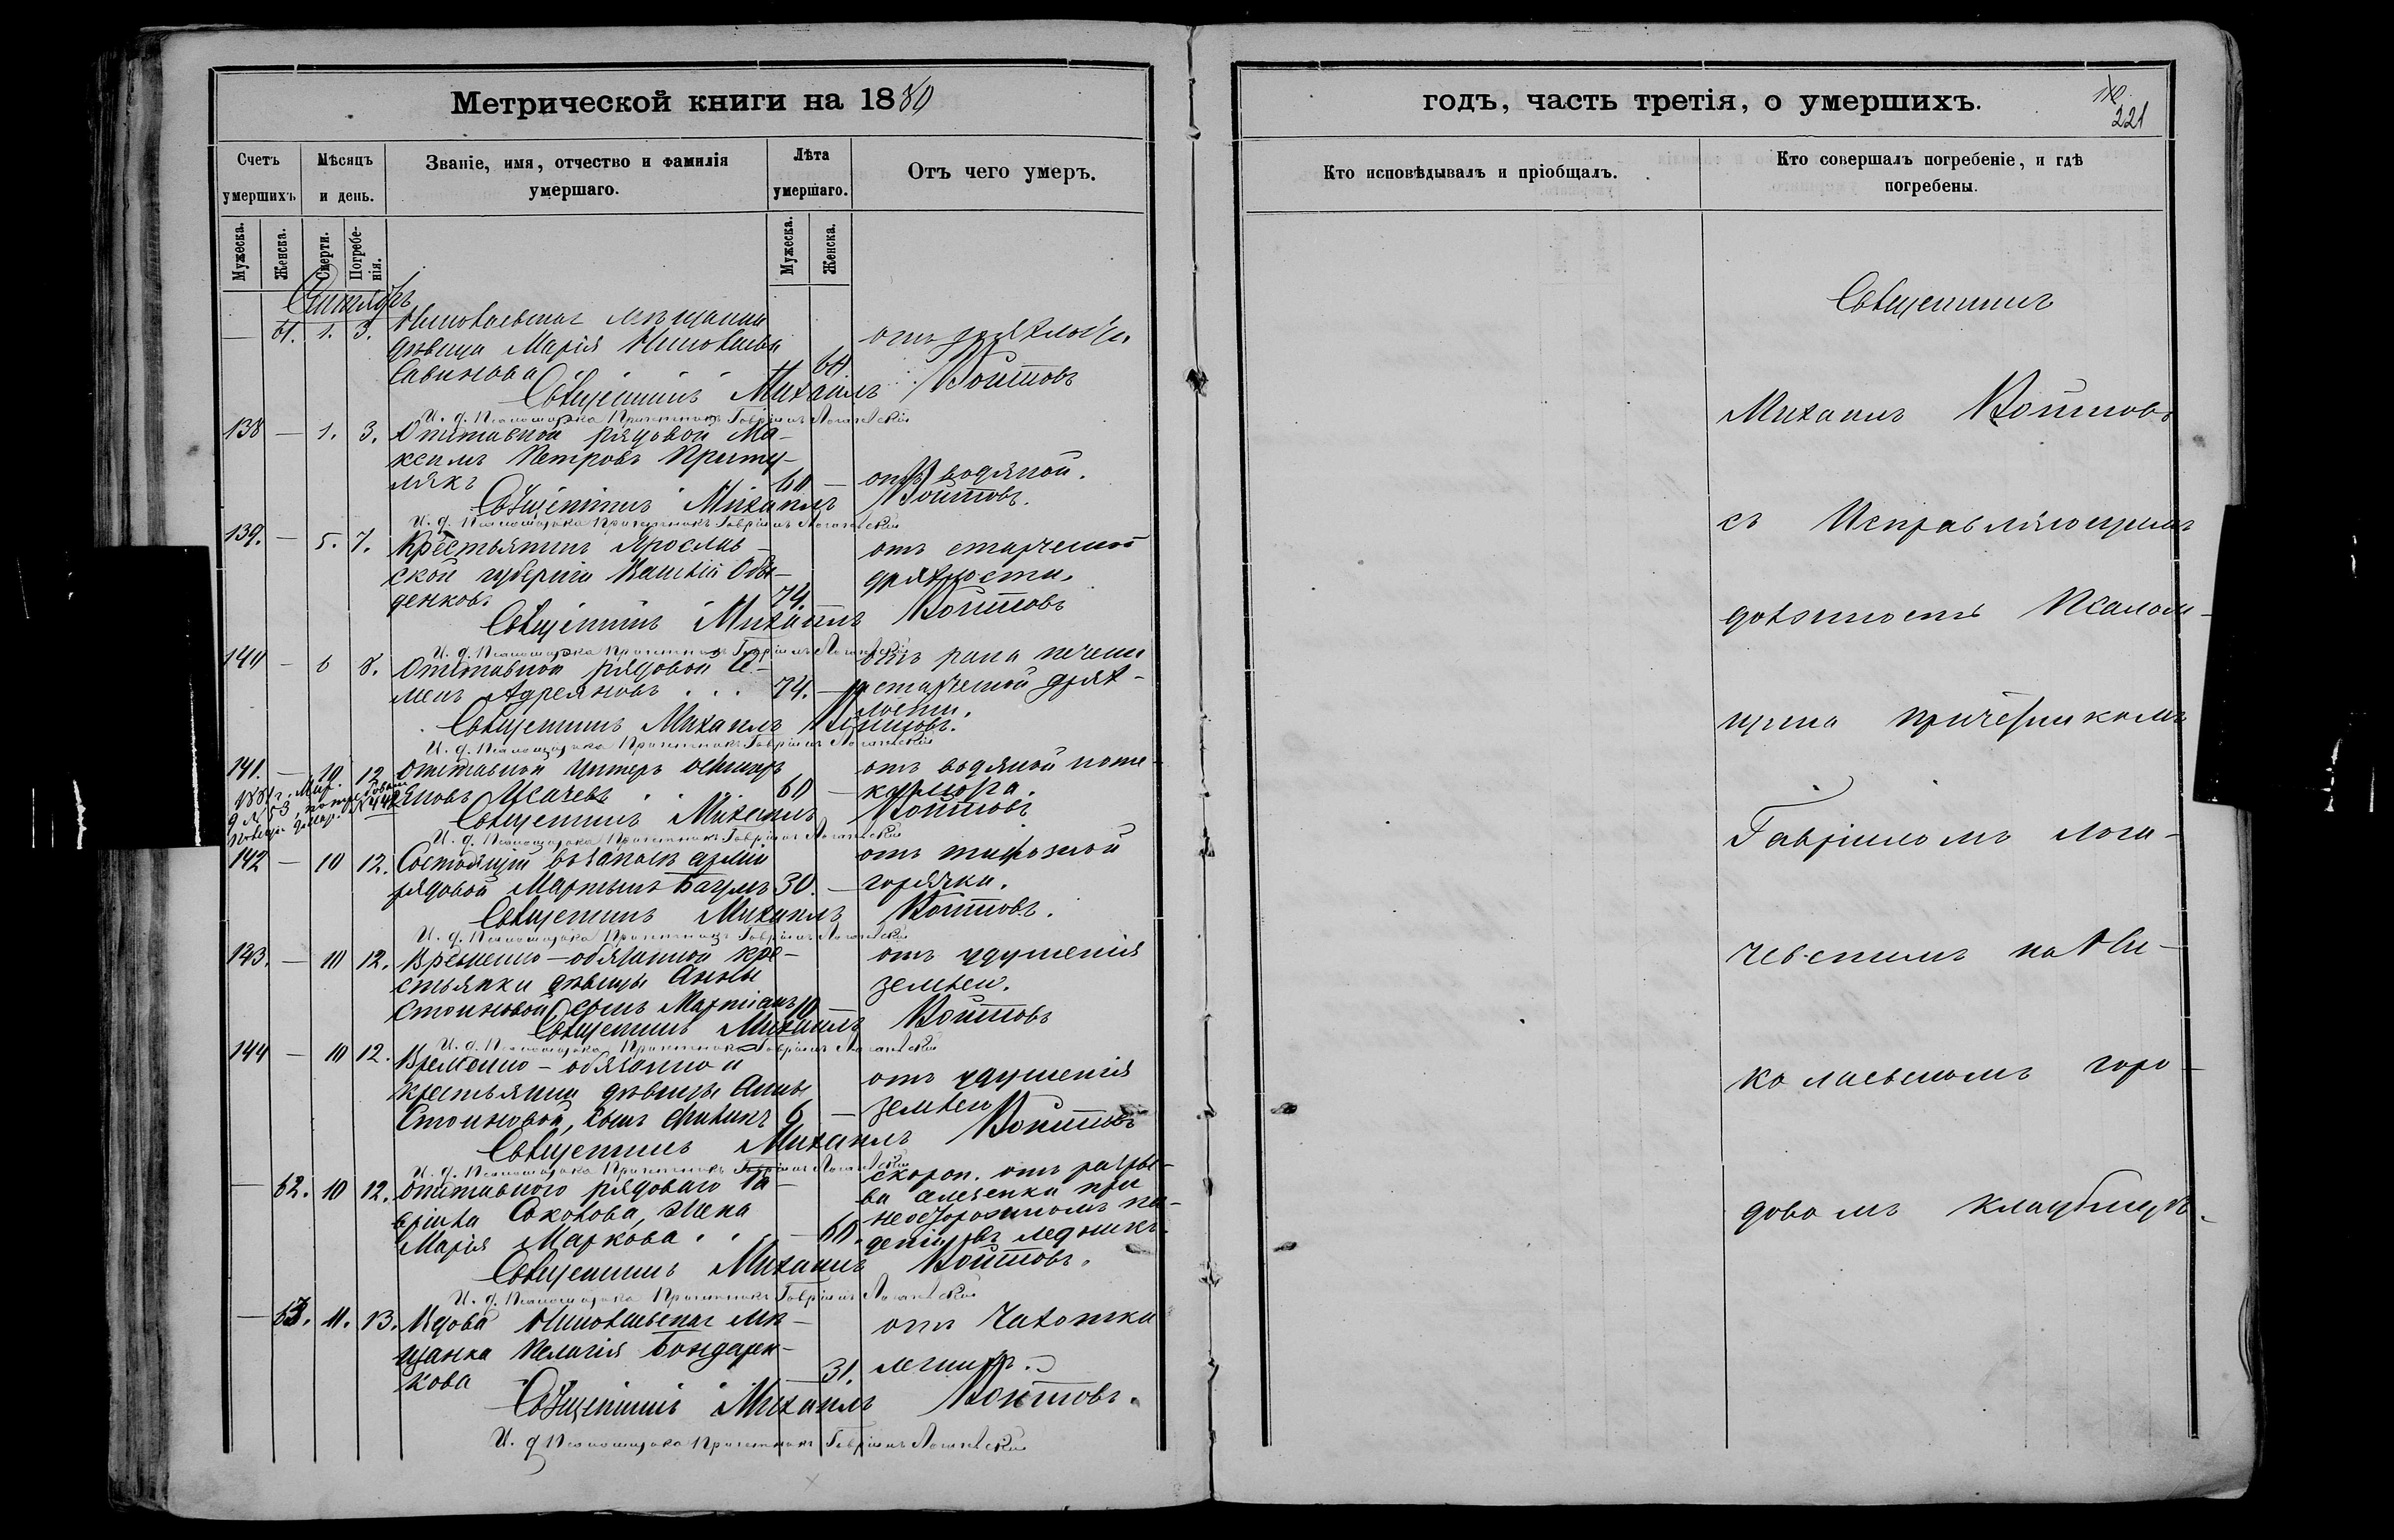 Метрической книги на 1880
Счетъ умершихъ
Мѣсяцъ и день.
Званіе, имя, отчество и фамилія умершаго.
Лѣта умершаго.
Отъ чего умеръ.
Мужеска.
Женска.
Смерти.
Погребе-
нія.
Мужеска.
Женска.
Сентябрь
— 61. 1. 3. Николаевская мѣщанка
дѣвица Марія Николаева отъ дряхлости
Савинова 60
Священникъ Михаилъ Войтовъ
И. д. Псаломщика Причетникъ Гавріилъ Логачевскій
138 — 1. 3. Отставной рядовой Ма-
ксимъ Петровъ Приту-
лякъ 60 — отъ водяной.
Священникъ Михаилъ Войтовъ.
И. д. Псаломщика Причетникъ Гавріилъ Логачевскій
139. — 5. 7. Крестьянинъ Ярослав- отъ старческой
ской губерніи Василій Обы- дряхлости.
денковъ. 74.
Священникъ Михаилъ Войтовъ
И. д. Псаломщика Причетникъ Гавріилъ Логачевскій
140 — 6 8. Отставной рядовой Се- отъ рака печени
менъ Адреяновъ . . . 74. — и старческой дрях-
лости.
Священникъ Михаилъ Войтовъ.
И. д. Псаломщика Причетникъ Гавріилъ Логачевскій
141. — 10 12 Отставной унтеръ офицеръ отъ водяной после
Исачевъ . . 60 —
Священникъ Михаилъ Войтовъ
И. д. Псаломщика Причетникъ Гавріилъ Логачевскій
142 — 10 12. Состоящій въ запасѣ арміи отъ тифозной
рядовой Мартынъ Багумъ 30. — горячки.
Священникъ Михаилъ Войтовъ.
И. д. Псаломщика Причетникъ Гавріилъ Логачевскій
143. — 10 12. Временно-обязанной кре- отъ удушенія
стьянки дѣвицы Анны землей.
Стоиновой сынъ 10 —
Священникъ Михаилъ Войтовъ
И. д. Псаломщика Причетникъ Гавріилъ Логачевскій
144 — 10 12. Временно-обязанной
крестьянки дѣвицы Анны отъ удушенія
Стоиновой, сынъ 6 — землей
Священникъ Михаилъ Войтовъ
И. д. Псаломщика Причетникъ Гавріилъ Логачевскій
— 62. 10 12. Отставного рядоваго Га- скороп. отъ разры-
вріила Соколова, жена ва селезенки при
Марія Маркова . . — 60. неосторожномъ па-
деніи въ ледникъ.
Священникъ Михаилъ Войтовъ.
И. д. Псаломщика Причетникъ Гавріилъ Логачевскій
— 63. 11. 13. Вдова Николаевская мѣ- отъ чахотки
щанка Пелагія Бондарен-
кова — 31. легкихъ.
Священникъ Михаилъ Войтовъ.
И. д. Псаломщика Причетникъ Гавріилъ Логачевскій
годъ, часть третія, о умершихъ.
221
Кто исповѣдывалъ и пріобщалъ.
Кто совершалъ погребеніе, и гдѣ
погребены.
Священникъ
Михаилъ Войтовъ
съ Исправляющимъ
должность Псалом-
щика причетникомъ
Гавріиломъ Лога-
чевскимъ на Ни-
колаевскомъ горо-
довомъ кладбищѣ.